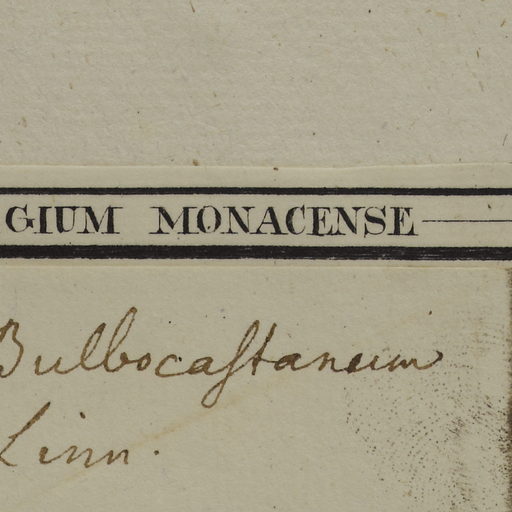 GIUM MONACENSE
Bulbocaſtaneum
Linn.